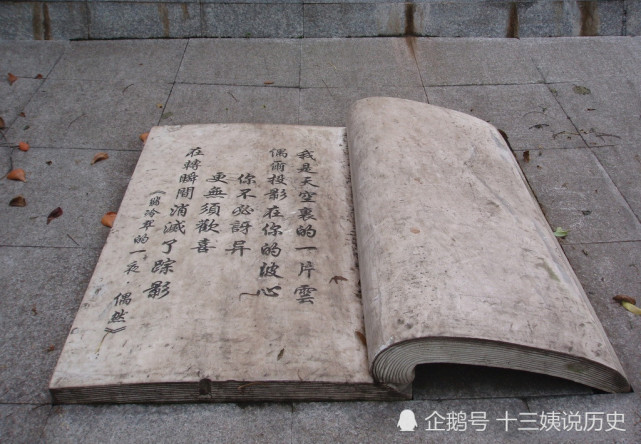 我是天空裏的一片雲
偶爾投影在你的波心
你不必訝异
更無須歡喜
在轉瞬間消滅了踪影
《翡冷翠的一夜·偶然》
企鹅号 十三姨说历史